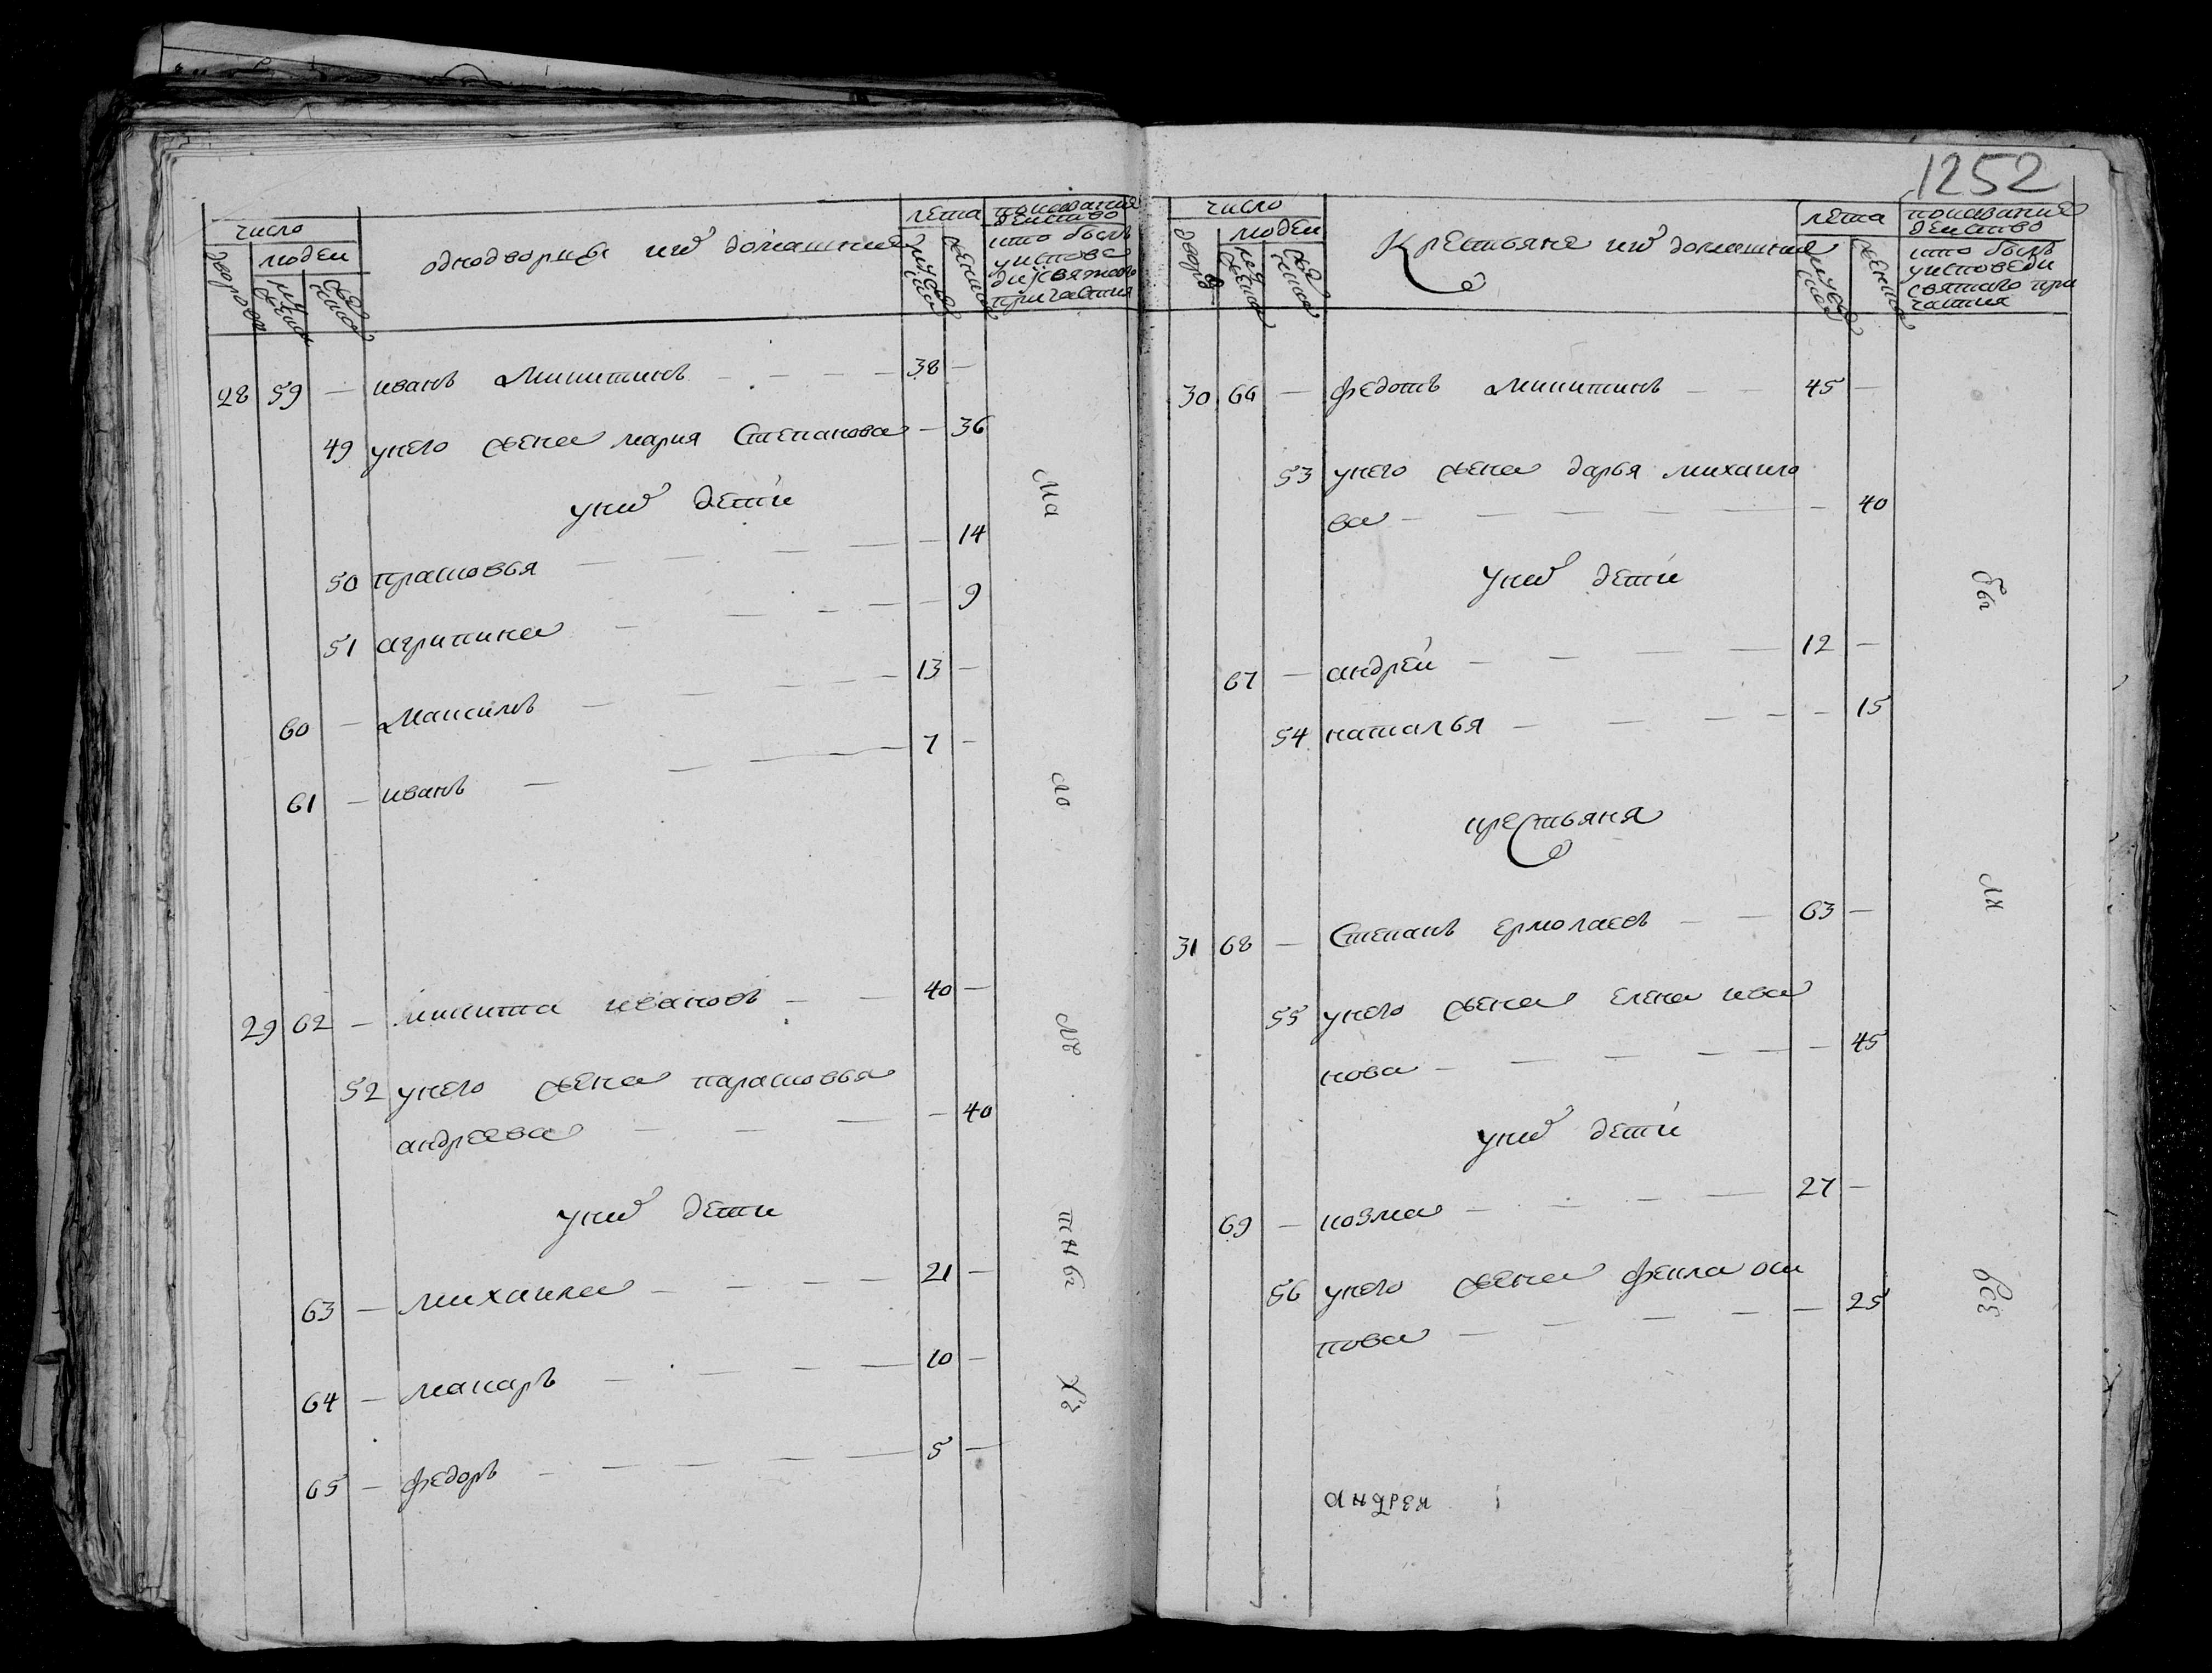 число
дворовъ
людеи
мужеска
женска
однодворцы ихъ домашние
лета
мужеска
женска
показание
деиство
кто былъ
уиспове
ди исвятаго
причастия
28 59 — иванъ Микитинъ — — — — 38 —
49 унего жена мария Степанова — 36
унихъ дети
50 прасковья — — — — — 14
51 агрипина — — — — — 9
60 — Максимъ — — — — — 13 —
61 — иванъ — — — — 7 —
29 62 — микита ивановъ — — 40 —
52 унего жена парасковья
андреева — — — — 40
унихъ дети
63 — михаила — — — — 21 —
64 — макаръ — — — — 10 —
65 — федоръ — — — — — 5 —
1252
число
дворов
людеи
мужеска
женска
Крестьяне ихъ домашние
лета
мужеска
женска
показание
деиство
кто былъ
уисповеди
святаго при
частия
30 66 — федотъ микитинъ — — 45 —
53 унего жена дарья михаило
ва — — — — — — 40
унихъ дети
67 — андреи — — — — 12 —
54 наталья — — — — — — 15
крестьяня
31 68 — Степанъ ермолаевъ — — 63 —
55 унего жена елена ива
нова — — — — — — 45
унихъ дети
69 — козма — — — — 27 —
56 унего жена фекла оси
пова — — — — — — 25
бы
ля
все
андреи